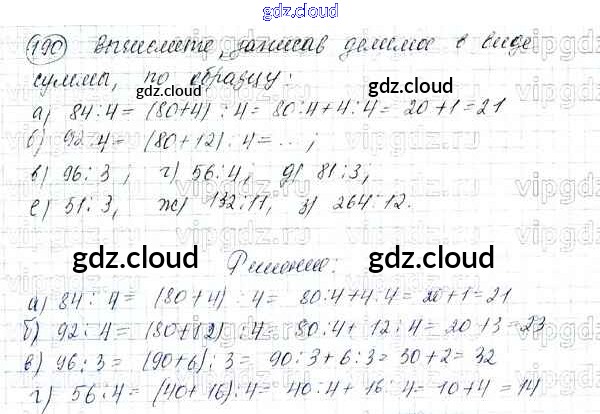 gdz.cloud
190 Вычислите, записав делимое в виде
суммы, по образцу:
gdz.cloud gdz.cloud
а) 84:4= (80+4) : 4= 80:4+4:4= 20+1=21
б) 92:4= (80+12) : 4= ... ;
в) 96:3 ; г) 56:4; д) 81:3;
е) 51:3, ж) 132:11, з) 264:12.
gdz.cloud gdz.cloud
Решение:
а) 84:4= (80+4) : 4= 80:4+4:4= 20+1=21
б) 92:4= (80+12) : 4= 80:4+ 12:4= 20+3=23
в) 96:3= (90+6) : 3= 90:3+6:3= 30+2= 32
г) 56:4= (40+16) : 4= 40:4+ 16:4= 10+4=14
vipgdz.ru